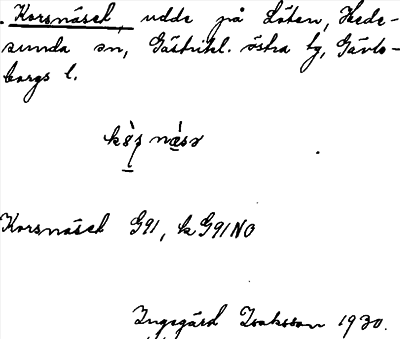 Korsnäset, udde på Löten, Hede-
sunda sn, Gästrikl. östra tg, Gävle-
borgs l.
Korsnäset G91, k G91NO
Ingegärd Isaksson 1930.